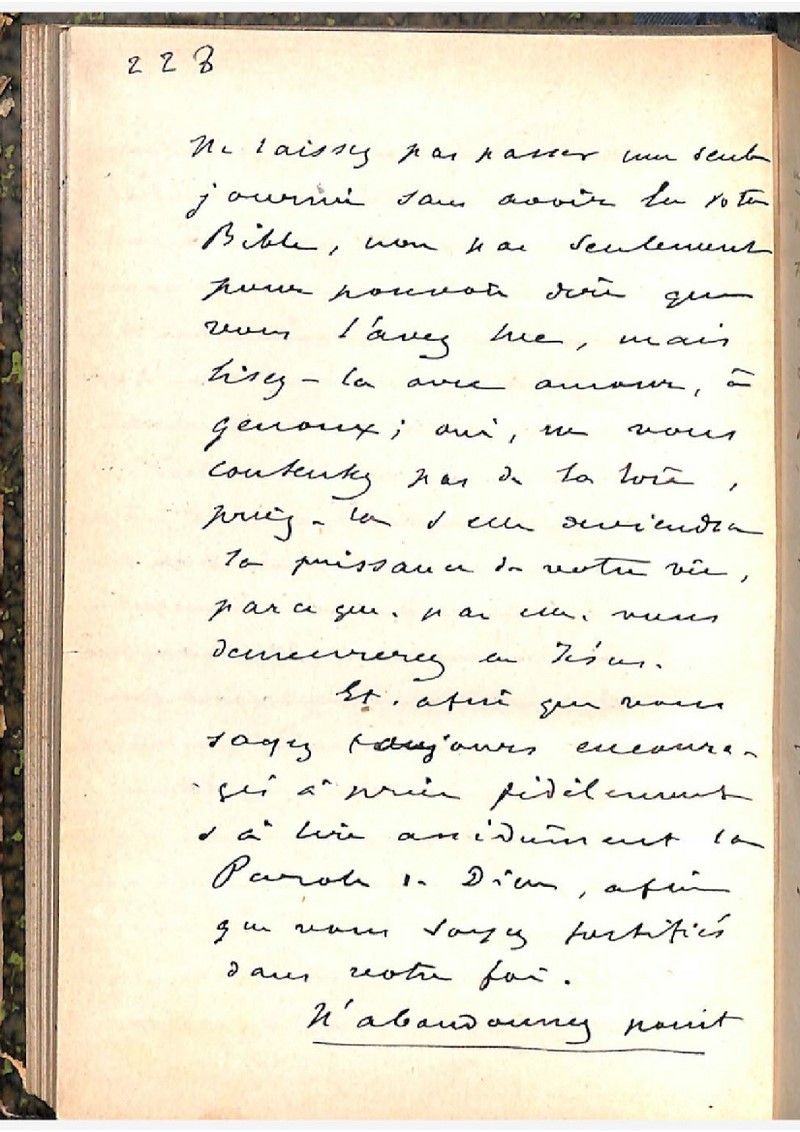 228
Ne laissez pas passer une seule
journée sans avoir lu votre
Bible, non pas seulement
pour pouvoir dire que
vous l'avez lue, mais
lisez-la avec amour, à
genoux ; oui, ne vous
contentez pas de la lire,
priez-la & elle deviendra
la puissance de votre vie,
parce que, par elle, vous
demeurerez en Jésus.
Et, afin que vous
soyez toujours encoura-
gés à prier fidèlement
& à lire assidûment la
Parole de Dieu, afin
que vous soyez fortifiés
dans votre foi.
N'abandonnez point